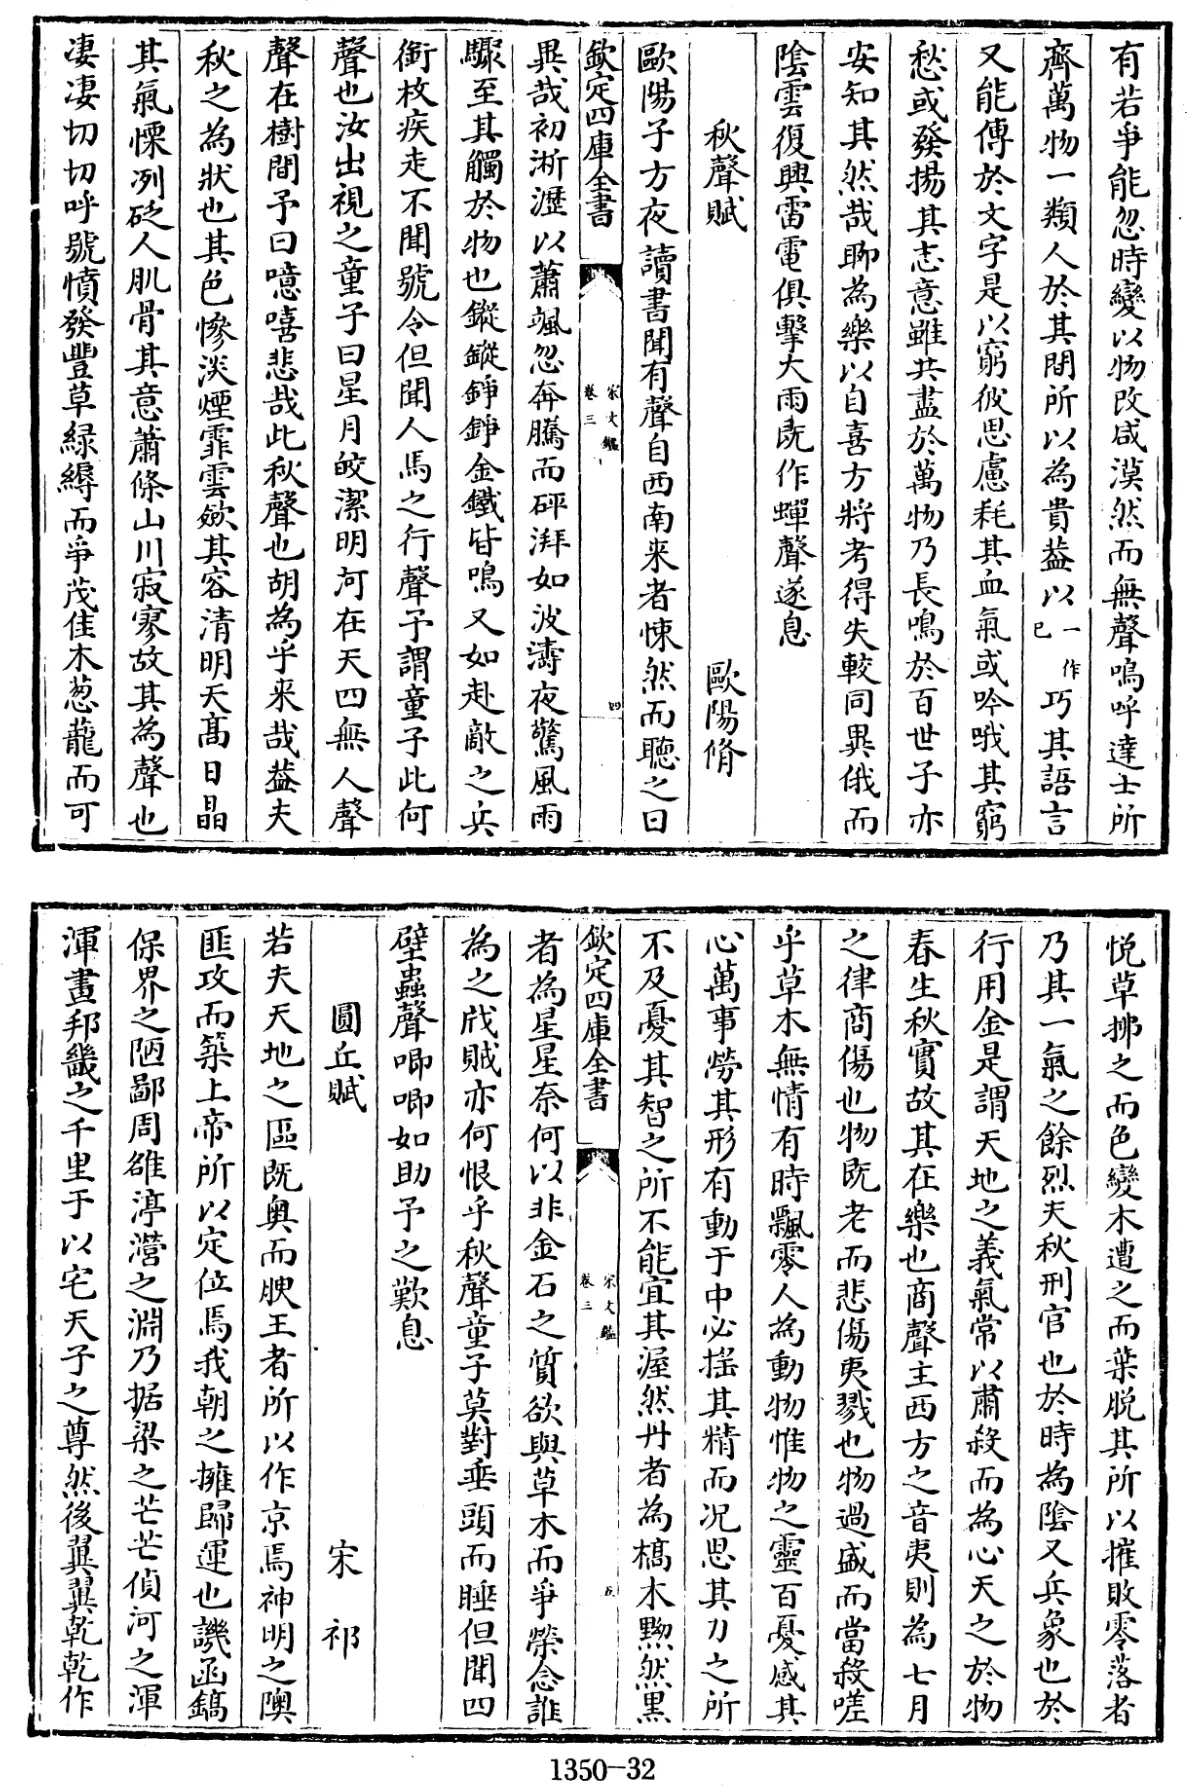 有若爭能忽時變以物改咸漠然而無聲嗚呼達士所
齊萬物一類人於其間所以為貴蓋以一作已巧其語言
又能傳於文字是以窮彼思慮耗其血氣或吟哦其窮
愁或發揚其志意雖共盡於萬物乃長鳴於百世予亦
安知其然哉聊為樂以自喜方將考得失較同異俄而
陰雲復興雷電俱擊大雨既作蟬聲遂息
秋聲賦 歐陽脩
歐陽子方夜讀書聞有聲自西南来者悚然而聽之曰
欽定四庫全書 宋文鑑 卷三 四
異哉初淅瀝以蕭颯忽奔騰而砰湃如波濤夜驚風雨
驟至其觸於物也鏦鏦錚錚金鐵皆鳴又如赴敵之兵
銜枚疾走不聞號令但聞人馬之行聲予謂童子此何
聲也汝出視之童子曰星月皎潔明河在天四無人聲
聲在樹間予曰噫嘻悲哉此秋聲也胡為乎来哉蓋夫
秋之為狀也其色慘淡煙霏雲歛其容清明天髙日晶
其氣慄冽砭人肌骨其意蕭條山川寂寥故其為聲也
凄凄切切呼號憤發豐草緑縟而爭茂佳木葱蘢而可
悦草拂之而色變木遭之而葉脱其所以摧敗零落者
乃其一氣之餘烈夫秋刑官也於時為陰又兵象也於
行用金是謂天地之義氣常以肅殺而為心天之於物
春生秋實故其在樂也商聲主西方之音夷則為七月
之律商傷也物既老而悲傷夷戮也物過盛而當殺嗟
乎草木無情有時飄零人為動物惟物之靈百憂感其
心萬事勞其形有動于中必揺其精而况思其力之所
不及憂其智之所不能宜其渥然丹者為槁木黝然黑
欽定四庫全書 宋文鑑 卷三 五
者為星星奈何以非金石之質欲與草木而爭榮念誰
為之戕賊亦何恨乎秋聲童子莫對垂頭而睡但聞四
壁蟲聲唧唧如助予之歎息
圓丘賦 宋祁
若夫天地之區既奥而腴王者所以作京焉神明之隩
匪攻而築上帝所以定位焉我朝之擁歸運也譏函鎬
保界之陋鄙周雒渟濙之淵乃据梁之芒芒偵河之渾
渾畫邦畿之千里于以宅天子之尊然後翼翼乾乾作
1350-32